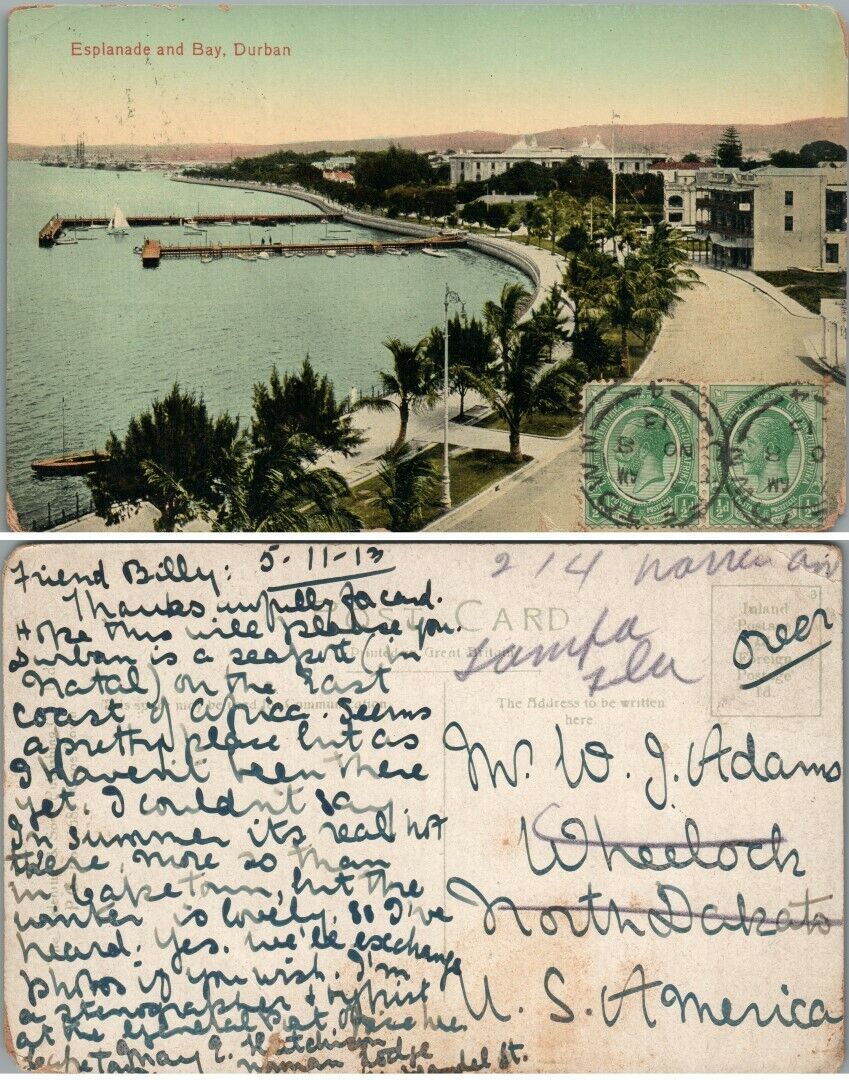 Esplanade and Bay, Durban
Friend Billy: 5-11-13
Thanks awfully for card.
Hope this will please you.
Durban is a seaport (in
Natal) on the East
Coast of Africa. Seems
a pretty place but as
I haven't been there
yet. I couldn't say.
In summer its real hot
there more so than
in Capetown, but the
winter is lovely. So I've
heard. Yes. we'll exchange
photos if you wish. I'm
a stenographer & typist
at the General Post Office here
Capetown. May E. Hutchison
Lodge
St.
POST CARD
Printed in Great Britain
This space may be used for Communication
The Address to be written
here.
Inland
Postage
½d
Foreign
Postage
1d.
over
214 Warren av
Tampa
Fla
Mr. W. J. Adams
Wheelock
North Dakota
U. S. America